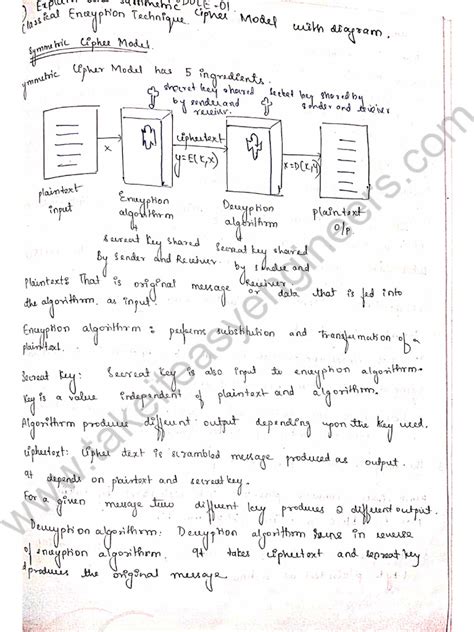 ) Explain symmetric Cipher Model with diagram.
MODULE-01
Classical Encryption Technique
Symmetric Cipher Model.
Symmetric Cipher Model has 5 ingredients.
secret key shared by sender and receiver.
Secret key shared by sender and receiver
x
ciphertext
y=E(K,X)
X=D(K,Y)
plaintext input
Encryption algorithm
Decryption algorithm
plaintext o/p
Secreat key shared By Sender and Receiver
Secreat key shared by sender and Receiver
Plaintext: That is original message or data that is fed into
the algorithm as input.
Encryption algorithm: performs substitution and Transformation of a
plaintext.
Secreat Key: Secreat Key is also input to encryption algorithm.
Key is a value independent of plaintext and algorithm.
Algorithm produce different output depending upon the key used.
Ciphertext: Cipher text is scrambled message produced as output.
It depends on plaintext and secreat key.
For a given message two different key produces 2 different output.
Decryption algorithm: Decryption algorithm runs in reverse
of encryption algorithm. It takes ciphertext and secreat key
& produces the original message
www.takeiteasyengineers.com